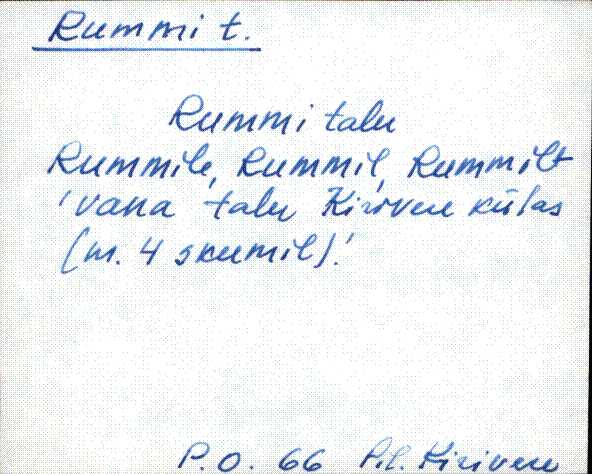 Rummi t.
Rummi talu
Rummile, Rummil, Rummilt
'vana talu Kirivere külas
(m. 4 skeemil).'
P.O. 66 Pil. Kirivere